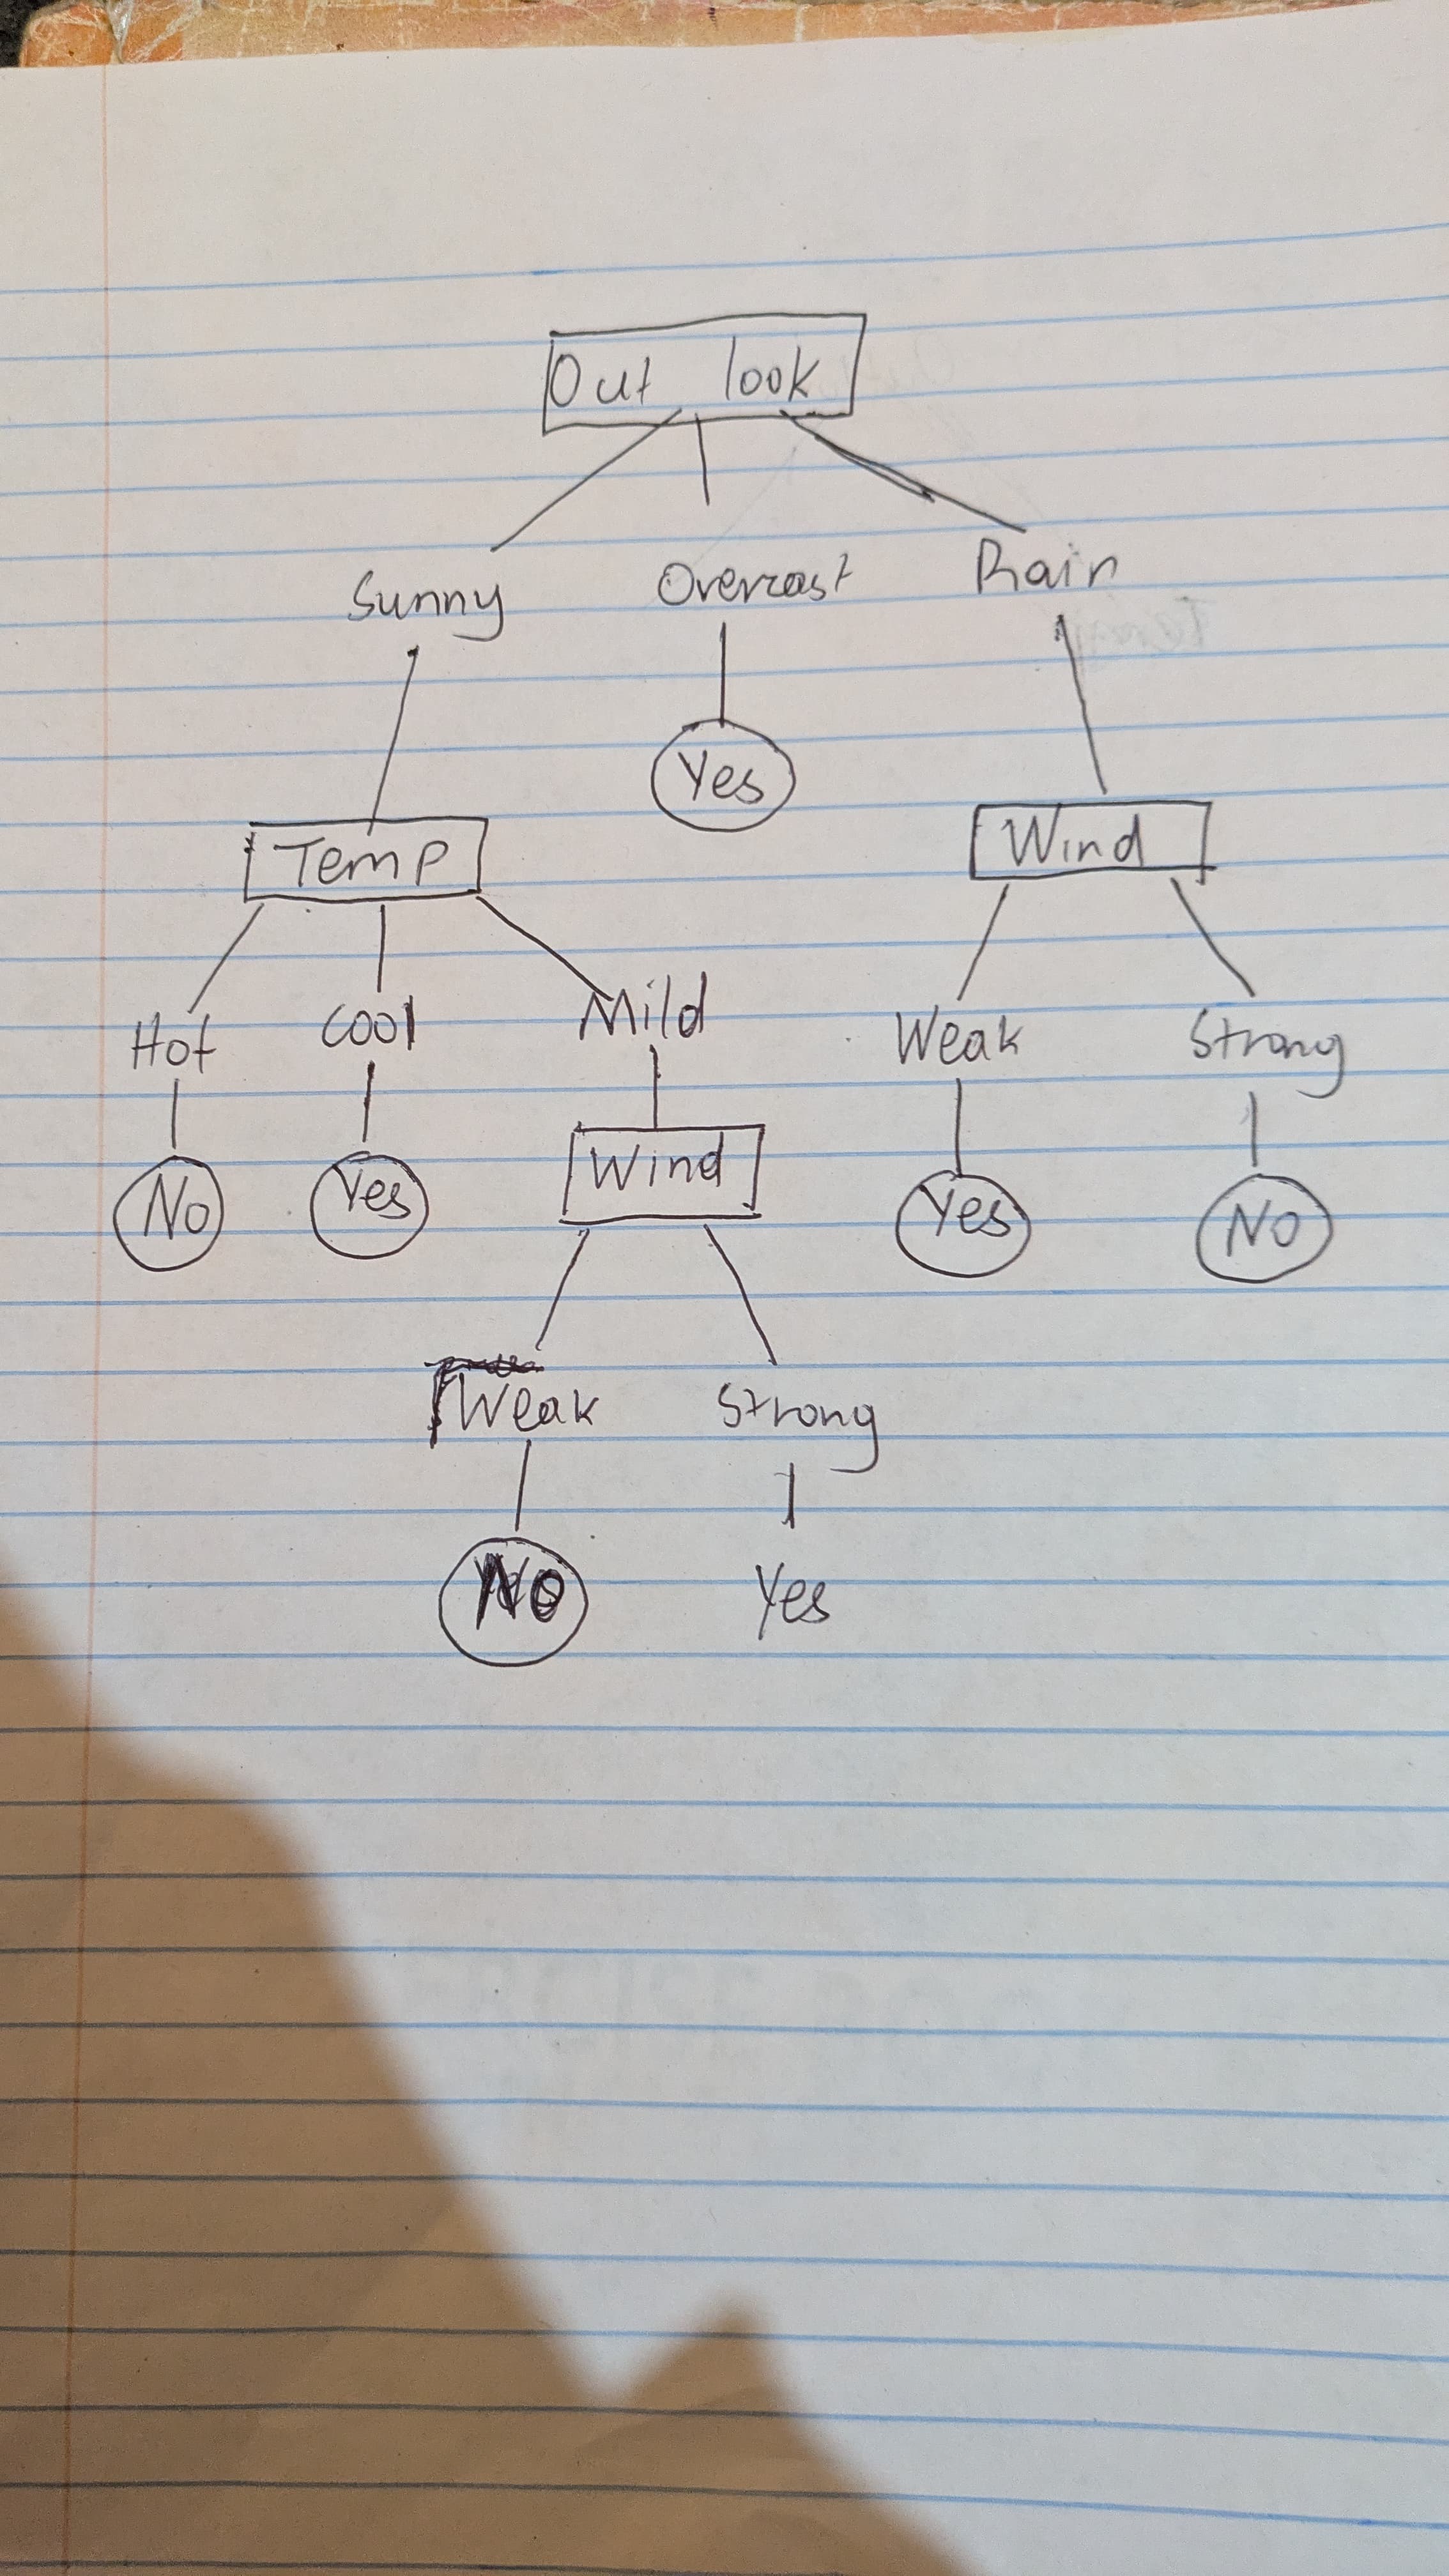 Out look
Sunny Overcast Rain
Yes
Temp Wind
Hot Cool Mild Weak Strong
No Yes Wind Yes No
Weak Strong
No Yes